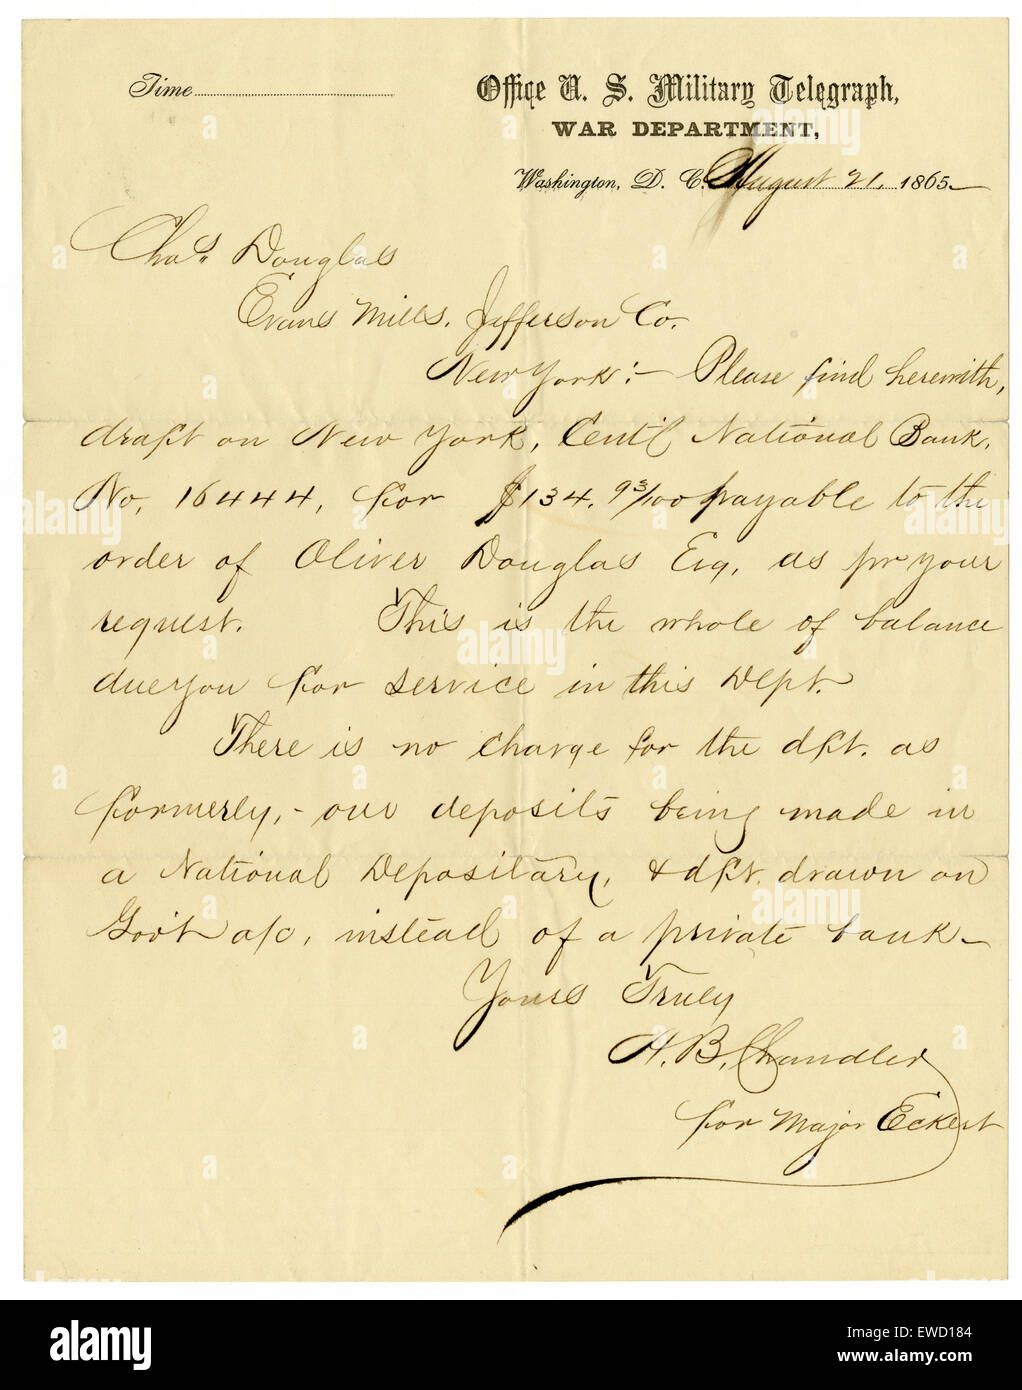 Time
Office U. S. Military Telegraph,
WAR DEPARTMENT,
Washington, D. C. August 21, 1865
Chas. Douglas
Evans Mills, Jefferson Co.
New York:— Please find herewith,
draft on New York, Cent'l National Bank,
No, 16444, for $134. 93/100 payable to the
order of Oliver Douglas Esq, as pr your
request. This is the whole of balance
due you for service in this Dept.
There is no charge for the dft. as
formerly,- our deposits being made in
a National Depositary, & dft. drawn on
Gov't a/c, instead of a private bank—
Yours Truly
H. B. Chandler
for Major Eckert
alamy
a
Image ID: EWD184
www.alamy.com